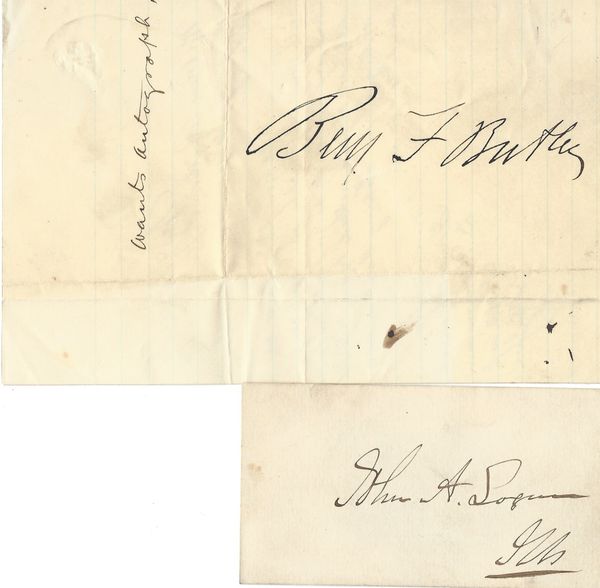 wants autograph,
Benj F Butler
John A. Logan
Ills